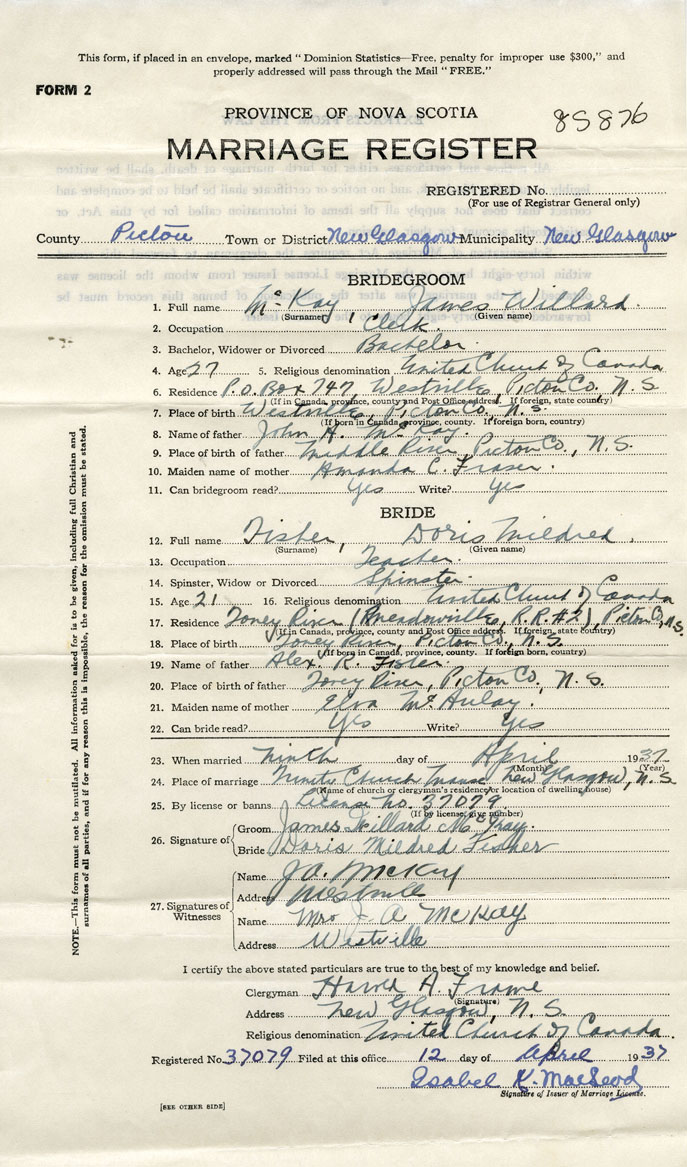 This form, if placed in an envelope, marked "Dominion Statistics—Free, penalty for improper use $300," and
properly addressed will pass through the Mail "FREE."
FORM 2
PROVINCE OF NOVA SCOTIA
85876
MARRIAGE REGISTER
REGISTERED No.
(For use of Registrar General only)
County Pictou Town or District New Glasgow Municipality New Glasgow
BRIDEGROOM
1. Full name McKay, James Willard.
(Surname) (Given name)
2. Occupation Clerk.
3. Bachelor, Widower or Divorced Bachelor.
4. Age 27 5. Religious denomination United Church of Canada
6. Residence P.O. Box 747, Westville, Pictou Co., N.S.
(If in Canada, province, county and Post Office address. If foreign, state country)
7. Place of birth Westville, Pictou Co., N.S.
(If born in Canada, province, county. If foreign born, country)
8. Name of father John A. McKay.
9. Place of birth of father Middle River, Pictou Co., N.S.
10. Maiden name of mother Amanda C. Fraser.
11. Can bridegroom read? Yes Write? Yes
BRIDE
12. Full name Fisher, Doris Mildred.
(Surname) (Given name)
13. Occupation Teacher.
14. Spinster, Widow or Divorced Spinster.
15. Age 21 16. Religious denomination United Church of Canada
17. Residence Toney River (R.R.#2), Pictou Co, N.S.
(If in Canada, province, county and Post Office address. If foreign, state country)
18. Place of birth Toney River, Pictou Co., N.S.
(If born in Canada, province, county. If foreign born, country)
19. Name of father Alex. R. Fisher
20. Place of birth of father Toney River, Pictou Co., N.S.
21. Maiden name of mother Elva McAulay.
22. Can bride read? Yes Write? Yes
23. When married Ninth day of April 1937
(Month) (Year)
24. Place of marriage Church manse, New Glasgow, N.S.
(Name of church or clergyman's residence or location of dwelling house)
25. By license or banns License No. 37079
(If by license, give number)
26. Signature of
Groom James Willard McKay.
Bride Doris Mildred Fisher
27. Signatures of Witnesses
Name J A. McKay
Address Westville
Name Mrs J. A McKay
Address Westville
I certify the above stated particulars are true to the best of my knowledge and belief.
Clergyman Harold A. Frame
(Signature)
Address New Glasgow, N.S.
Religious denomination United Church of Canada.
Registered No. 37079 Filed at this office 12 day of April 1937
Isabel K. MacLeod
Signature of Issuer of Marriage License.
[SEE OTHER SIDE]
NOTE.—This form must not be mutilated. All information asked for is to be given, including full Christian and
surnames of all parties, and if for any reason this is impossible, the reason for the omission must be stated.